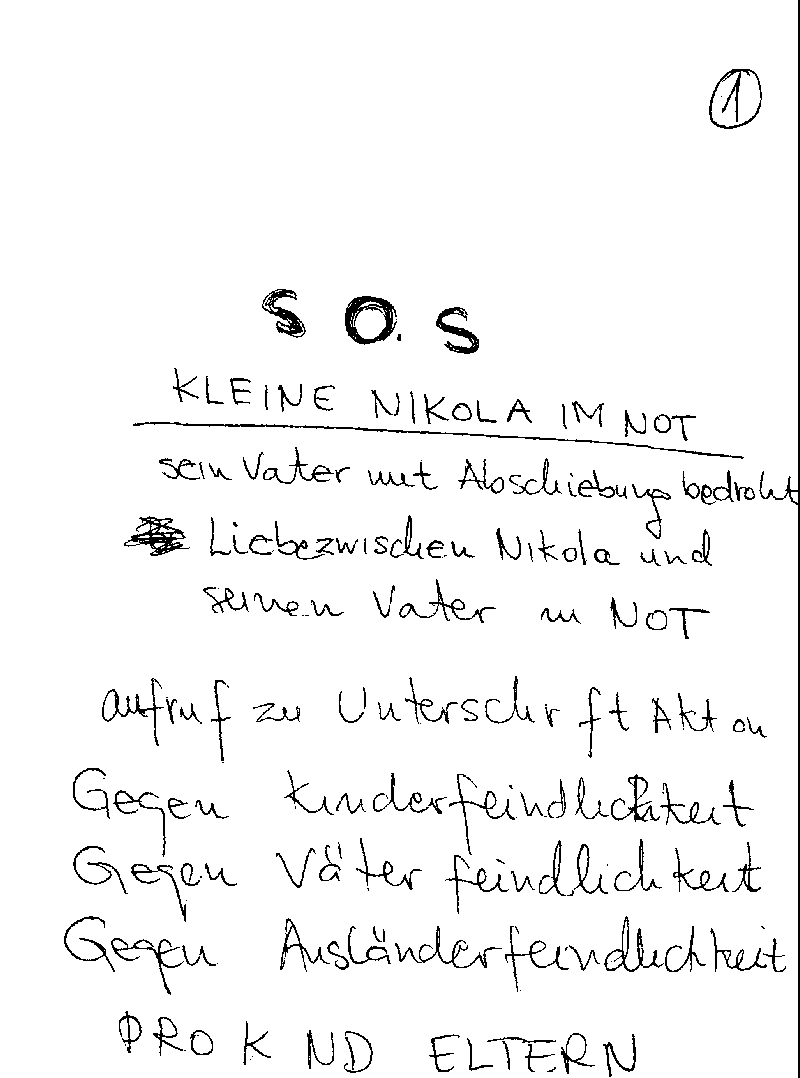 1
S O. S
KLEINE NIKOLA IM NOT
sein Vater mit Abschiebung bedroht
Liebe zwischen Nikola und
seinen Vater in NOT
aufruf zu Unterschrift Aktion
Gegen Kinderfeindlichkeit
Gegen Väter feindlichkeit
Gegen Ausländerfeindlichkeit
PRO KIND ELTERN